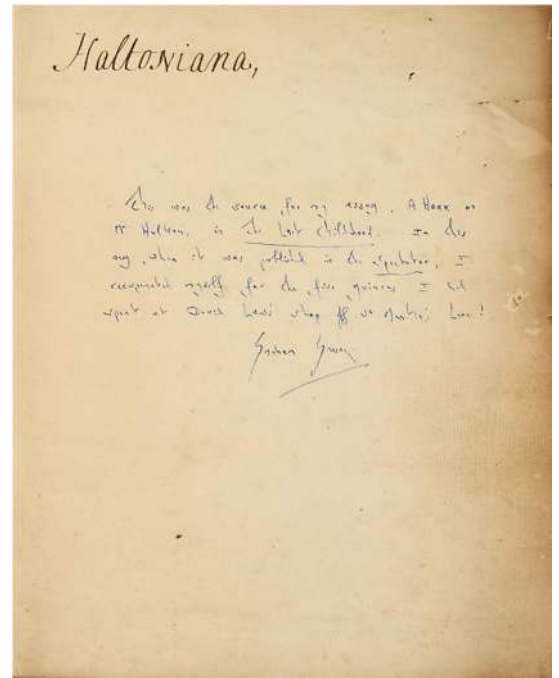 Haltoniana,
This was the source for my essay, A Hoax on
Mr Hulton, in The Lost Childhood. In this
way, when it was published in the Spectator, I
recuperated myself for the five guineas I had
spent at David Low's shop off St Martin's Lane!
Graham Greene